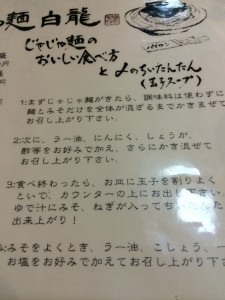 麺 白龍
じゃじゃ麺の
おいしい食べ方
と 〆のちいたんたん
(玉子スープ)
1:まずじゃじゃ麺がきたら、調味料は使わずに
麺とみそだけを全体が混ざるまでかきまぜて
お召し上がり下さい。
2:次に、ラー油、にんにく、しょうが、
酢等をお好みで加え、さらにかき混ぜて
お召し上がり下さい。
3:食べ終わったら、お皿に玉子を割りよく
といで、カウンターの上にお出し下さい
ゆで汁にみそ、ねぎが入ってちいたんたん
出来上がり!
みそをよくとき、ラー油、こしょう、
お塩をお好みで加えてお召し上がり下さ